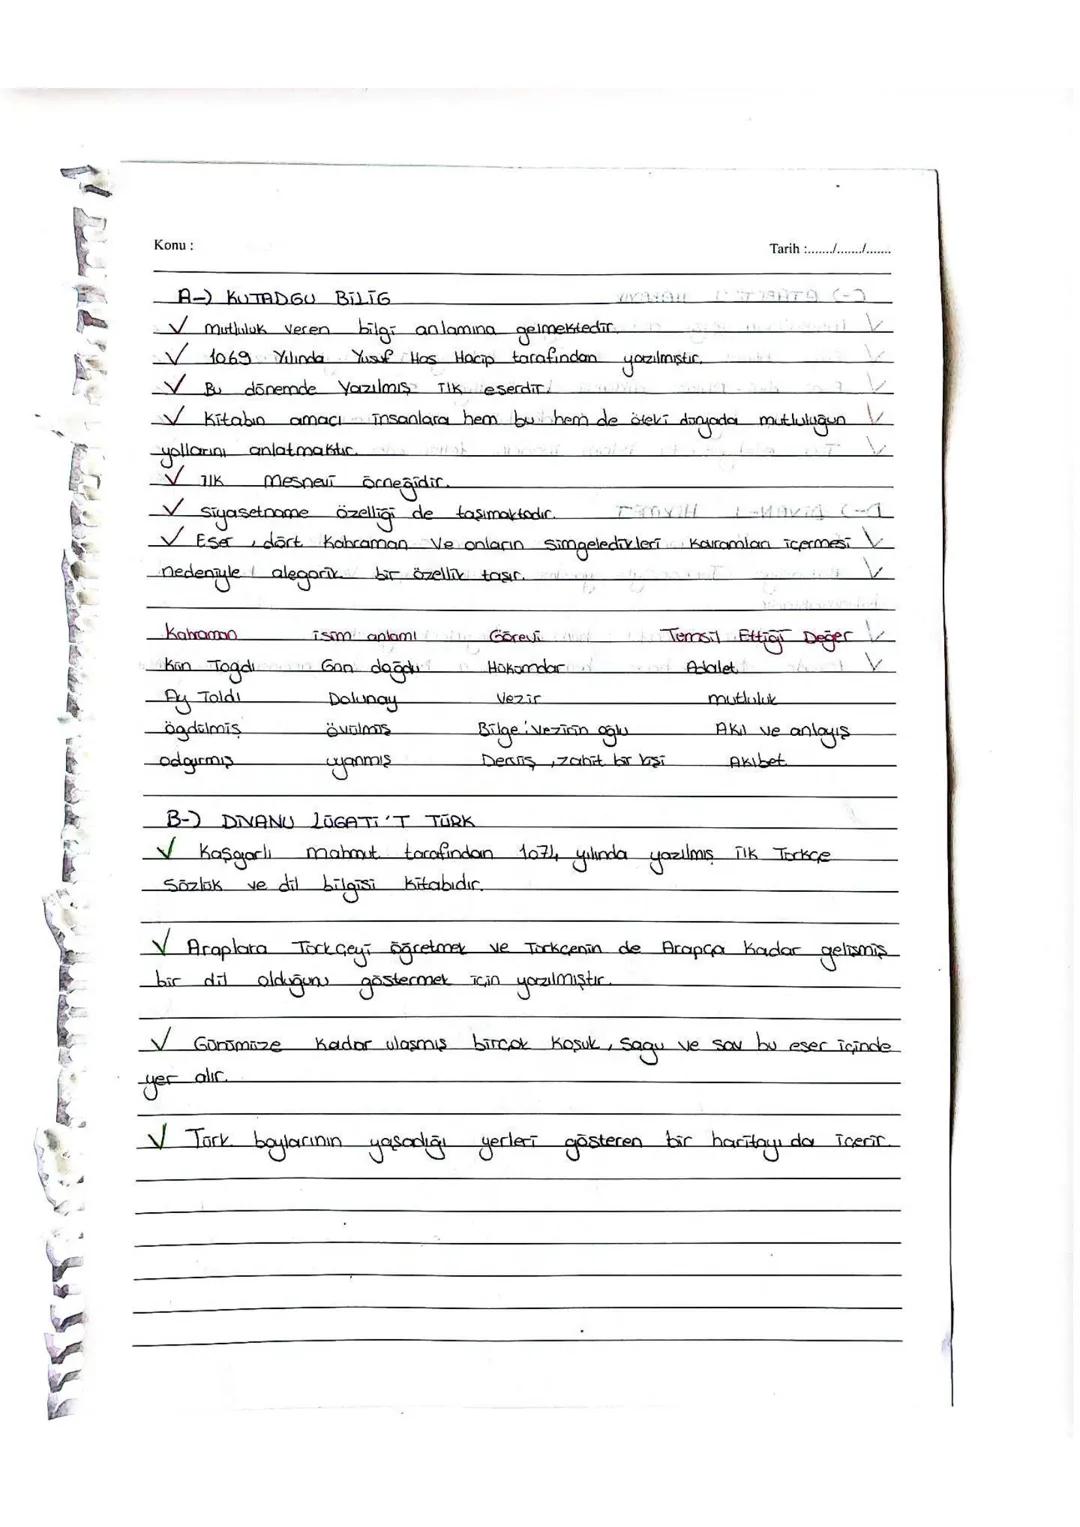 Konu :
Tarih :......./......./.......
A-) KUTADGU BİLİG
✓ mutluluk veren bilgi anlamına gelmektedir.
✓ 1069 Yılında Yusuf Has Hacip tarafından yazılmıştır.
✓ Bu dönemde Yazılmış ilk eserdir.
✓ Kitabın amacı insanlara hem bu hem de öteki dünyada mutluluğun
yollarını anlatmaktır.
✓ ilk mesnevi örneğidir.
✓ siyasetname özelliği de taşımaktadır.
✓ Eser, dört Kahraman Ve onların simgeledikleri kavramları içermesi
nedeniyle alegorik bir özellik taşır.
Kahraman isim anlamı Görevi Temsil Ettiği Değer
Kün Togdı Gün doğdu Hükümdar Adalet
Ay Toldı Dolunay Vezir mutluluk
ögdülmiş övülmüş Bilge: Vezirin oğlu Akıl ve anlayış
odgurmış uyanmış Derviş, zahit bir kişi Akıbet
B-) DİVANU LÜGATİ'T TÜRK
✓ Kaşgarlı mahmut tarafından 1074 yılında yazılmış ilk Türkçe
Sözlük ve dil bilgisi kitabıdır.
✓ Araplara Türkçeyi öğretmek ve Türkçenin de Arapça kadar gelişmiş
bir dil olduğunu göstermek için yazılmıştır.
✓ Günümüze kadar ulaşmış birçok Koşuk, Sagu ve sav bu eser içinde
yer alır.
✓ Türk boylarının yaşadığı yerleri gösteren bir haritayı da içerir.